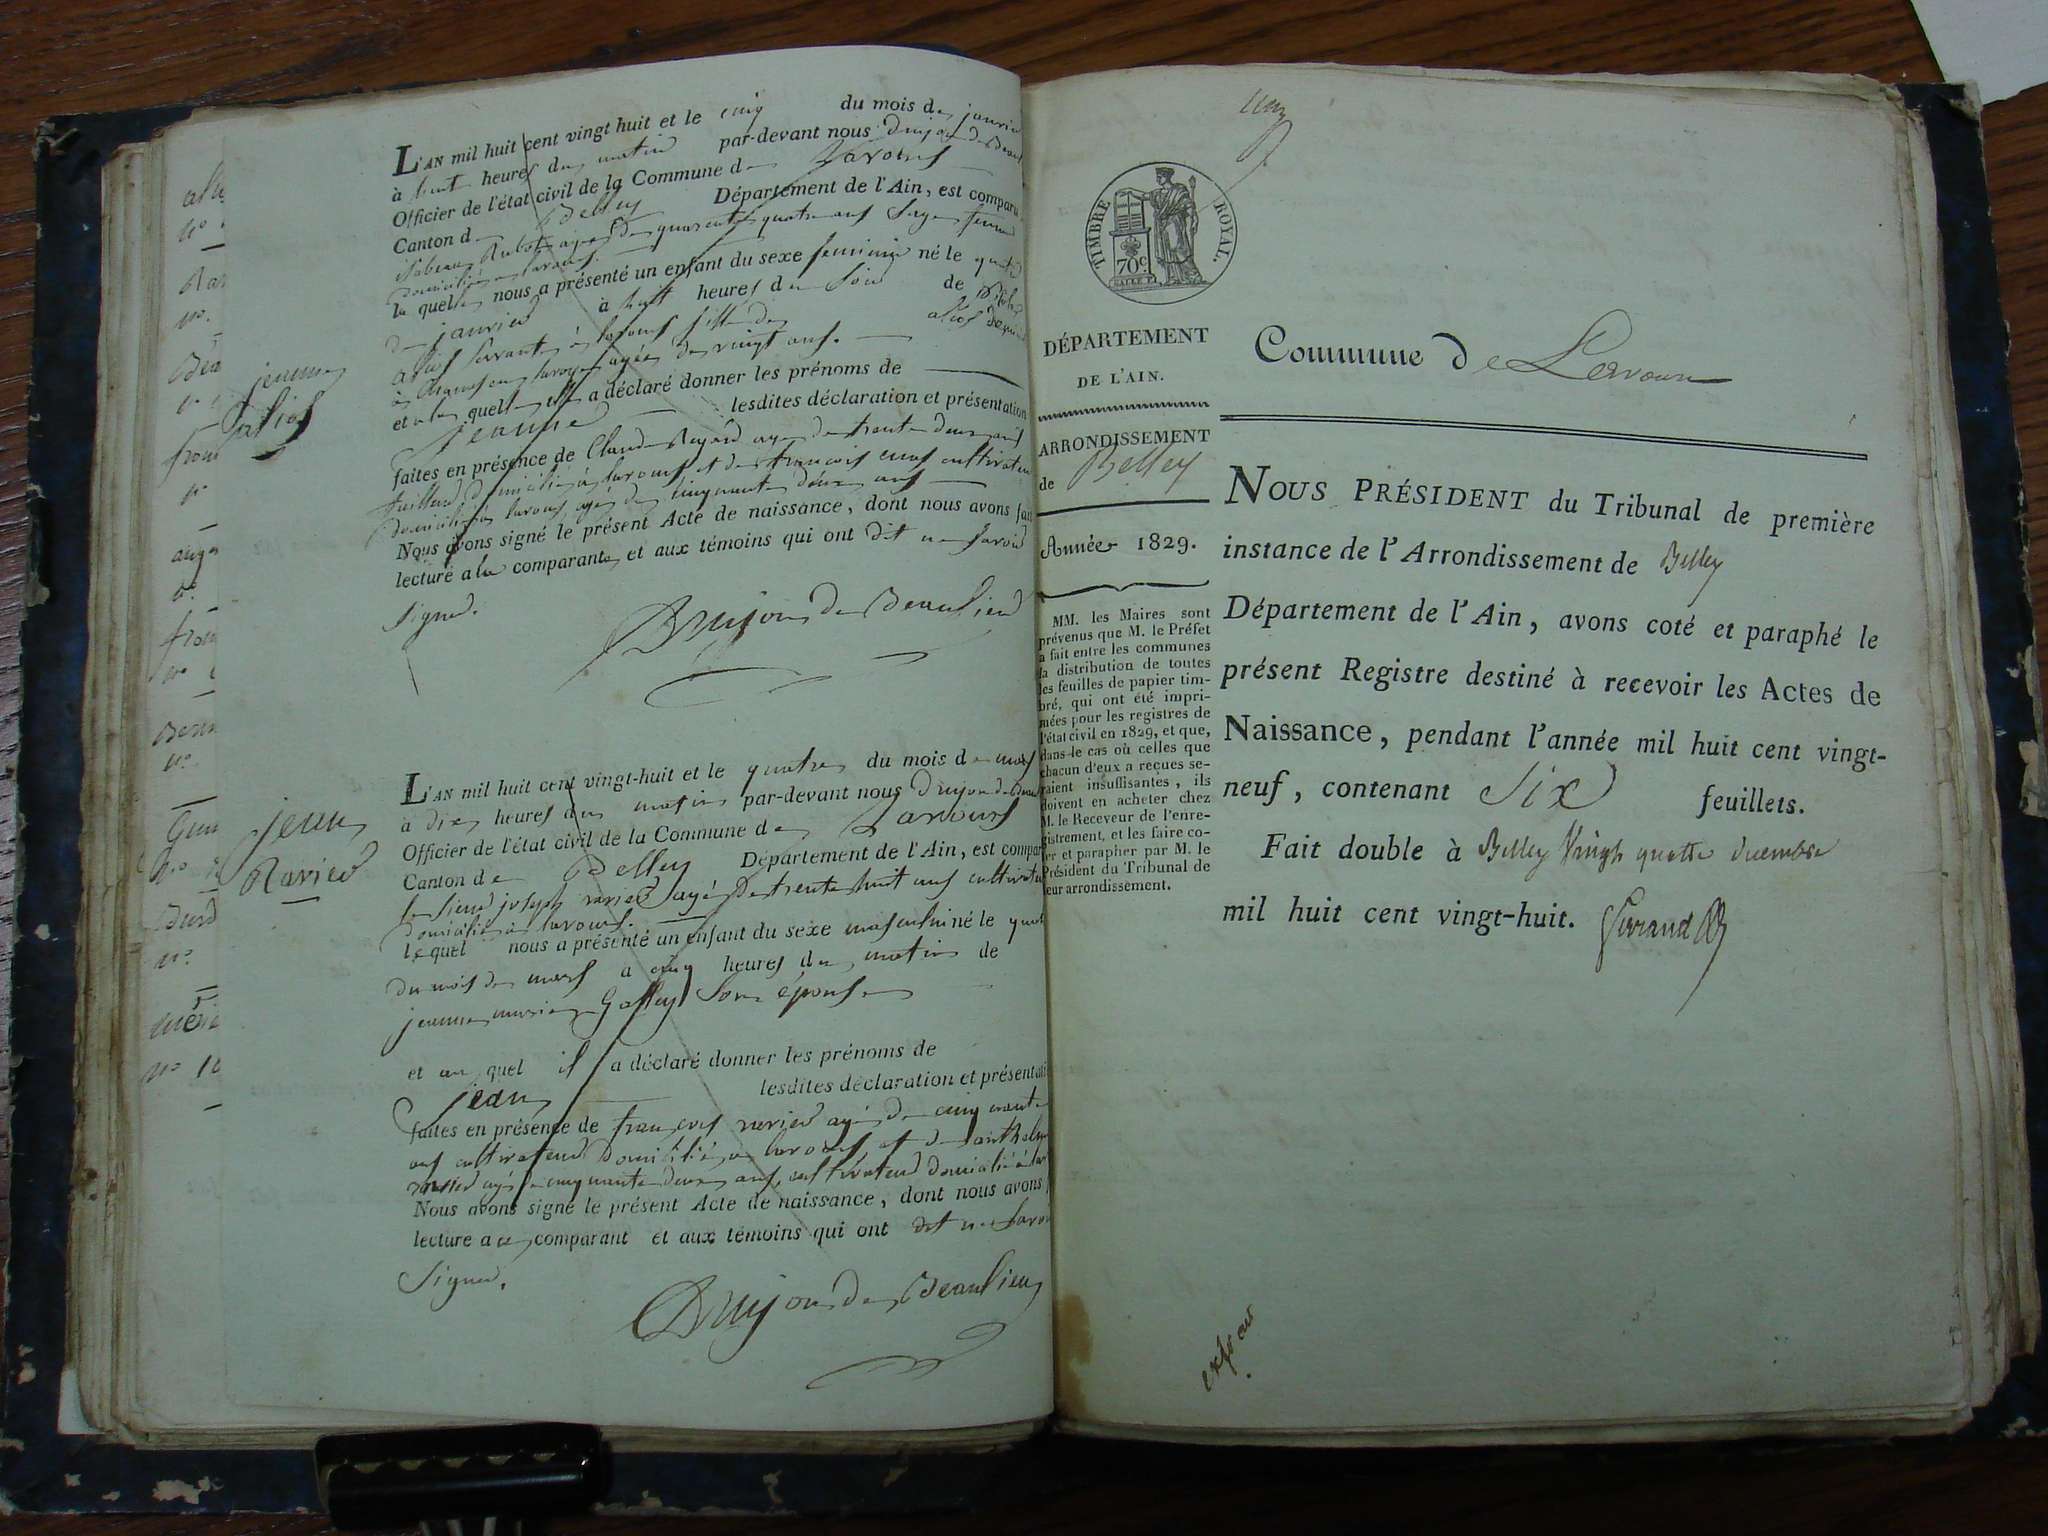 jeanne
alios
L'AN mil huit cent vingt huit et le cinq du mois de janvier
à huit heures du matin par-devant nous Drujon de Beau
Officier de l'état civil de la Commune de Lavours
Canton de Belley Département de l'Ain, est comparu
agée de quarante quatre ans sage femme
domiciliée à lavours.
la quelle nous a présenté un enfant du sexe feminin né le quatre
de janvier à huit heures du soir de
alios servante à lavours fille de alios
à agée de vingt ans.
et a la quelle elle a déclaré donner les prénoms de
jeanne lesdites déclaration et présentation
faites en présence de Claude Reyard agé de trente deux ans
tailleur domicilié à lavours et de francois cultivateur
domicilié à lavours, agé de cinquante deux ans
Nous avons signé le présent Acte de naissance, dont nous avons fait
lecture a la comparante, et aux témoins qui ont dit ne savoir
signer.
Drujon de Beaulieu
jean
Ravier
L'AN mil huit cent vingt-huit et le quatre du mois de mars
à dix heures du matin par-devant nous Drujon de Beau
Officier de l'état civil de la Commune de Lavours
Canton de Belley Département de l'Ain, est compar
le sieur joseph ravier agé de trente huit ans cultivateur
domicilié à lavours.
lequel nous a présenté un enfant du sexe masculin né le quat
du mois de mars a cinq heures du matin de
jeanne marie Gollet son épouse
et au quel il a déclaré donner les prénoms de
jean lesdites déclaration et présentati
faites en présence de françois ravier agé de cinquante
ans cultivateur domicilié à lavours et de anthelme
ravier agé de cinquante deux ans, cultivateur domicilié à lav
Nous avons signé le présent Acte de naissance, dont nous avons
lecture a ce comparant et aux témoins qui ont dit ne savoi
signer.
Drujon de Beaulieu
TIMBRE ROYAL.
70c.
DÉPARTEMENT
DE L'AIN.
ARRONDISSEMENT
de Belley
Année 1829.
MM. les Maires sont
prévenus que M. le Préfet
a fait entre les communes
la distribution de toutes
les feuilles de papier tim-
bré, qui ont été impri-
mées pour les registres de
l'état civil en 1829, et que,
dans le cas où celles que
chacun d'eux a reçues se-
raient insuffisantes, ils
doivent en acheter chez
M. le Receveur de l'enre-
gistrement, et les faire co-
ter et parapher par M. le
Président du Tribunal de
leur arrondissement.
Commune de Lavours
NOUS PRÉSIDENT du Tribunal de première
instance de l'Arrondissement de Belley
Département de l'Ain, avons coté et paraphé le
présent Registre destiné à recevoir les Actes de
Naissance, pendant l'année mil huit cent vingt-
neuf, contenant Six feuillets.
Fait double à Belley Vingt quatre decembre
mil huit cent vingt-huit.